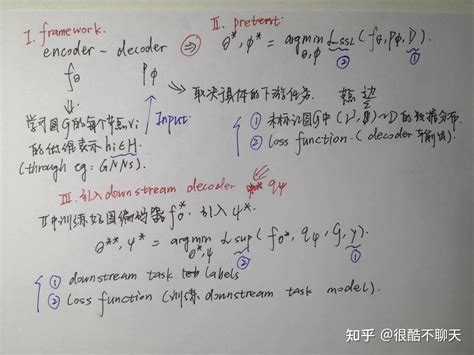 I. framework.
encoder - decoder
fθ pφ
⇓ ↓
学习图G的每个节点vi
的低维表示 hi∈H.
(through eg: GNNs).
Input
II. pretext
⇒ θ*, φ* = argmin θ,φ Lssl (fθ, pφ, D).
② ①
取决具体的下游任务. 节点 边
① 未标记图G中 (V, E) ~ D 的数据分布.
② loss function. (decoder 输出).
III. 引入 downstream decoder qψ
II中训练好图编码器 fθ*. 引入 ψ*.
θ**, ψ* = argmin θ*,ψ Lsup (fθ*, qψ, G, y).
② ①
① downstream task labels
② loss function (训练 downstream task model).
知乎 @很酷不聊天